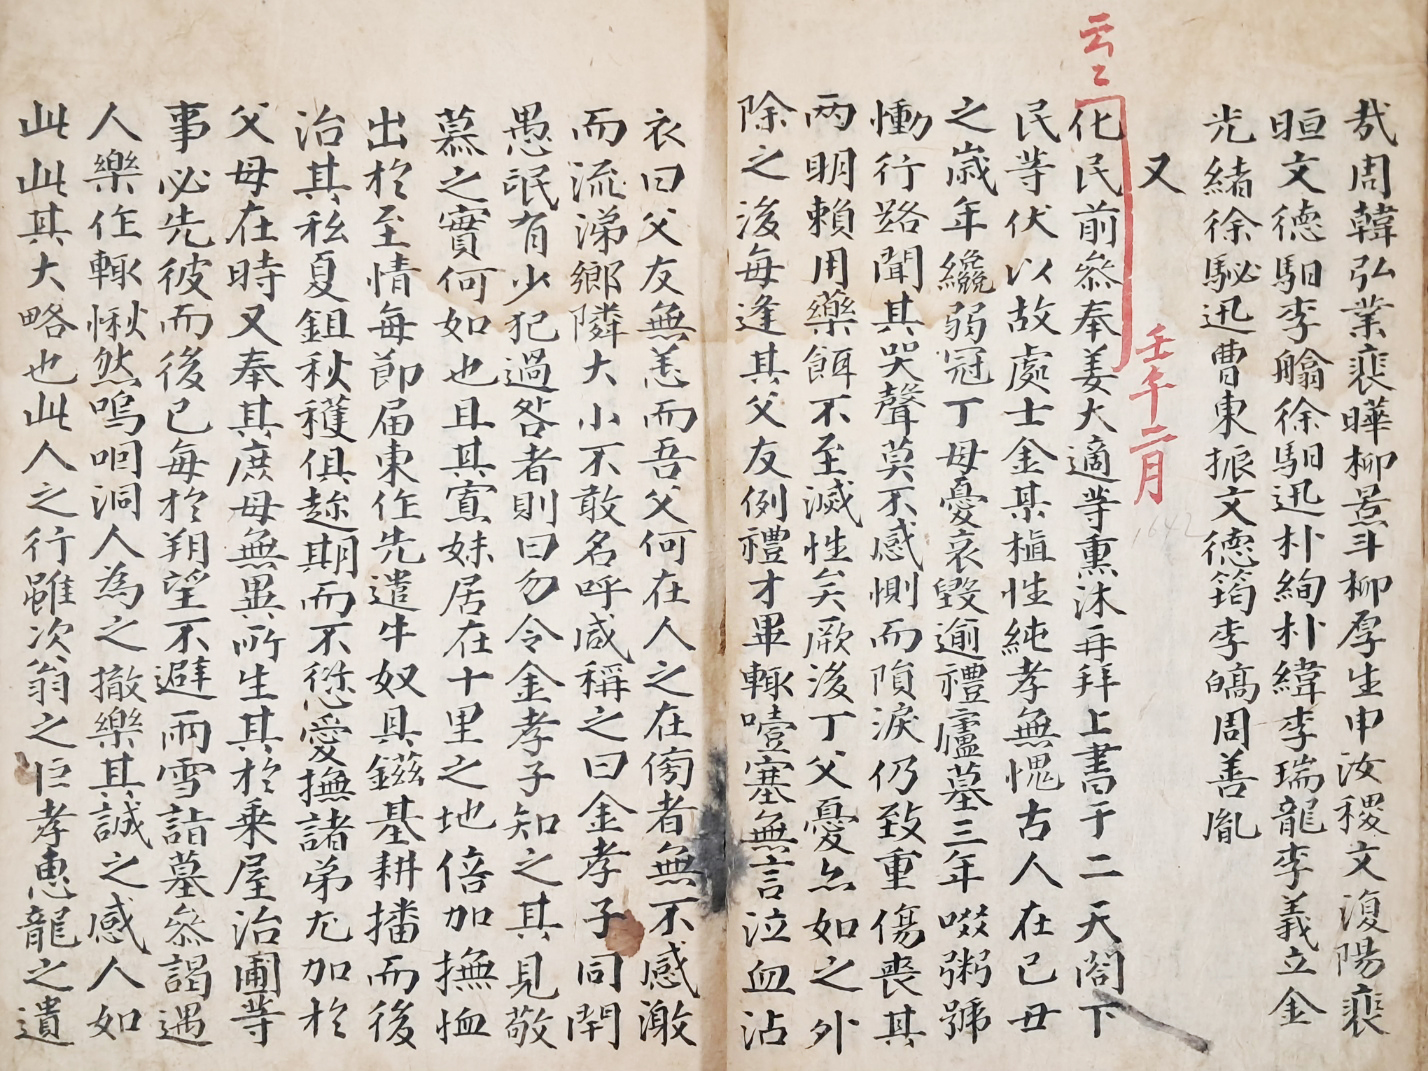 哉周韓弘業裵曄柳景斗柳厚生申汝稷文復陽裵
晅文德馹李艡徐馹迅朴絢朴緯李瑞龍李義立金
光緖徐駜迅曹東振文德筠李皜周善胤
又
壬午二月
1642
云云
化民前叅奉姜大適等熏沐再拜上書于二天閤下
民等伏以故處士金某植性純孝無愧古人在己丑
之歳年纔弱冠丁母憂哀毀逾禮廬墓三年啜粥號
慟行路聞其哭聲莫不感惻而隕淚仍致重傷喪其
兩明賴用藥餌不至滅性矣厥後丁父憂亦如之外
除之後每逢其父友例禮才畢輒噎塞無言泣血沾
衣曰父友無恙而吾父何在人之在傍者無不感激
而流涕鄕隣大小不敢名呼咸稱之曰金孝子同閈
愚氓有少犯過咎者則曰勿令金孝子知之其見敬
慕之實何如也且其寡妹居在十里之地倍加撫恤
出於至情每節届東作先遣牛奴具鎡基耕播而後
治其私夏鉏秋穫俱趂期而不愆愛撫諸弟尤加於
父母在時又奉其庶母無異所生其於乘屋治圃等
事必先彼而後已每於朔望不避雨雪詣墓叅謁遇
人樂作輒愀然嗚咽洞人為之撤樂其誠之感人如
此此其大略也此人之行雖次翁之巨孝惠龍之遺